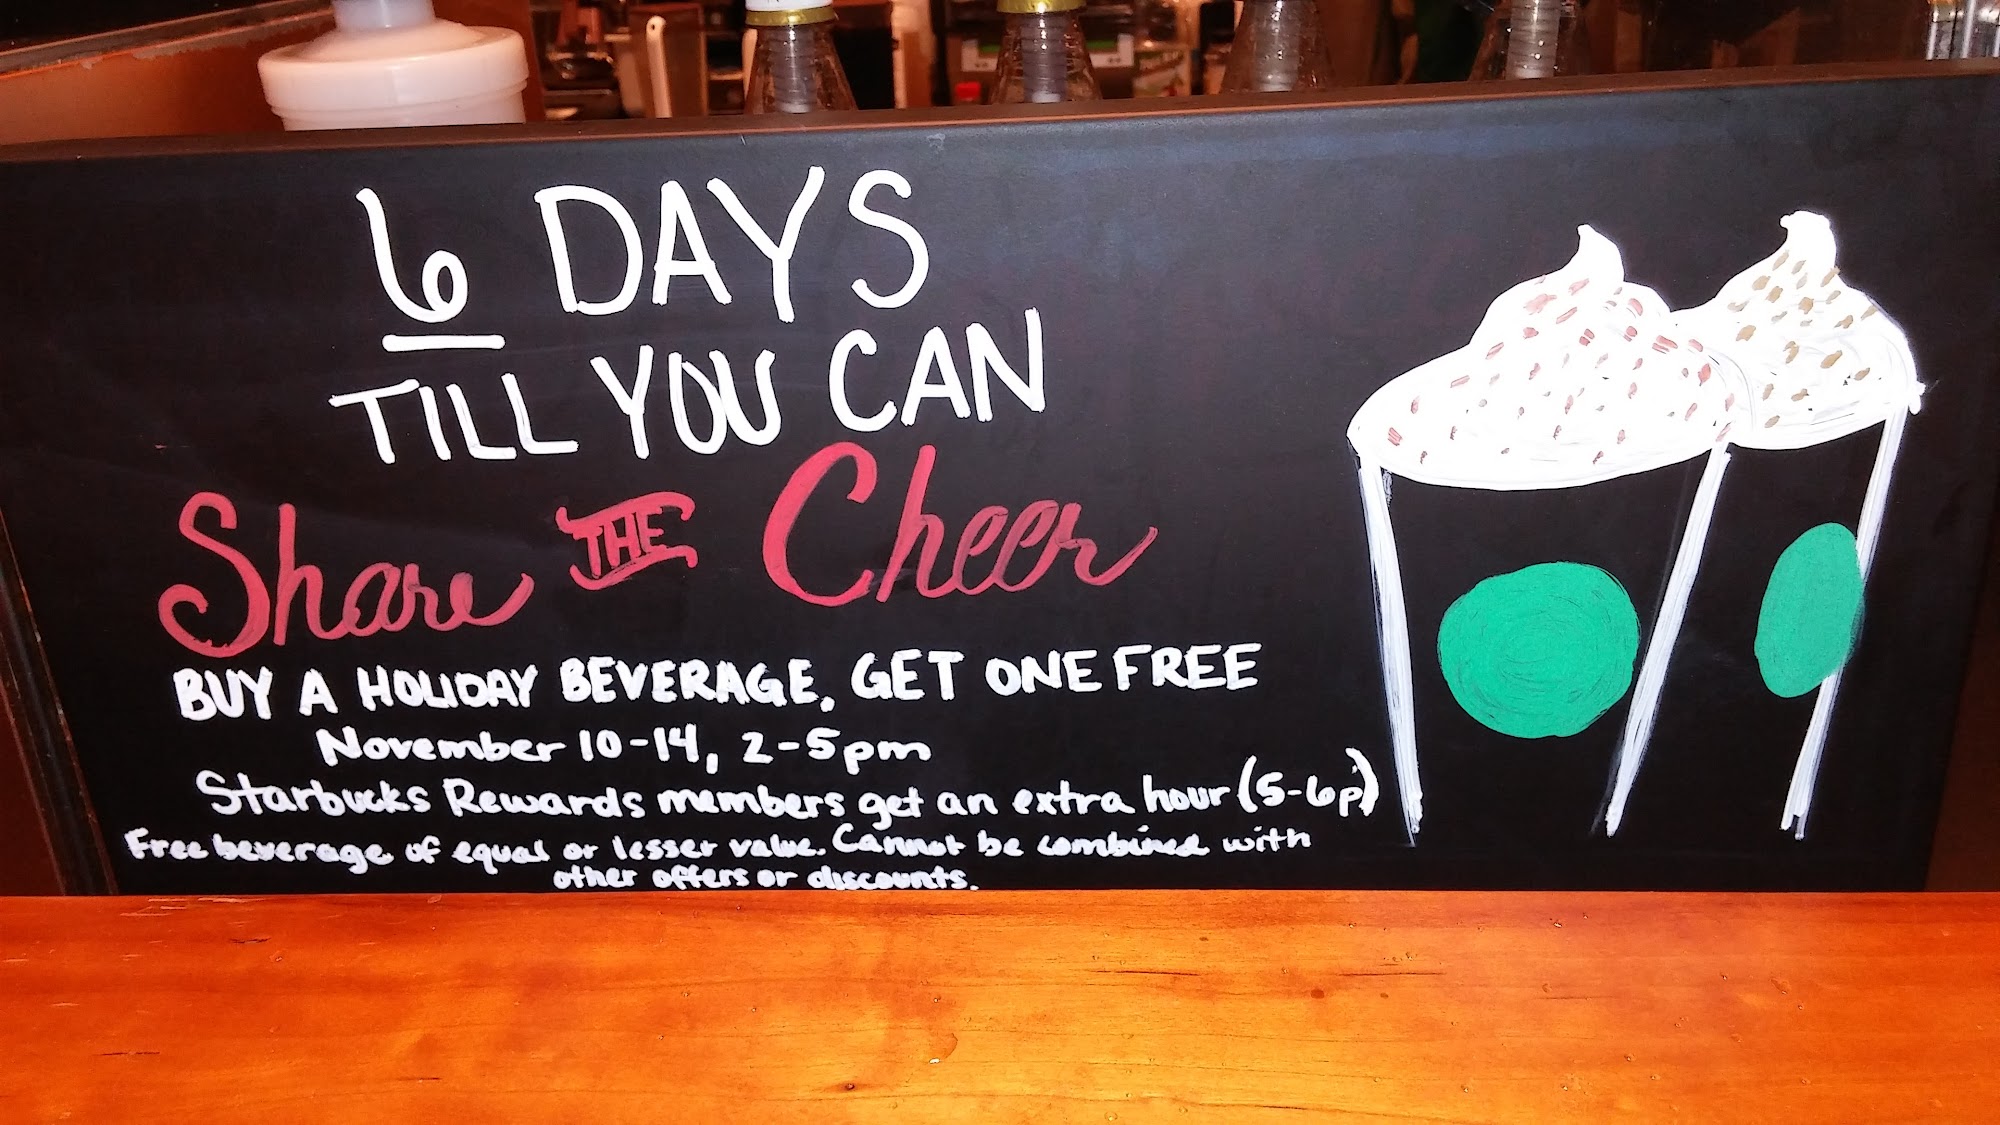 6 DAYS
TILL YOU CAN
Share THE Cheer
BUY A HOLIDAY BEVERAGE, GET ONE FREE
November 10-14, 2-5pm
Starbucks Rewards members get an extra hour (5-6p)
Free beverage of equal or lesser value. Cannot be combined with
other offers or discounts.